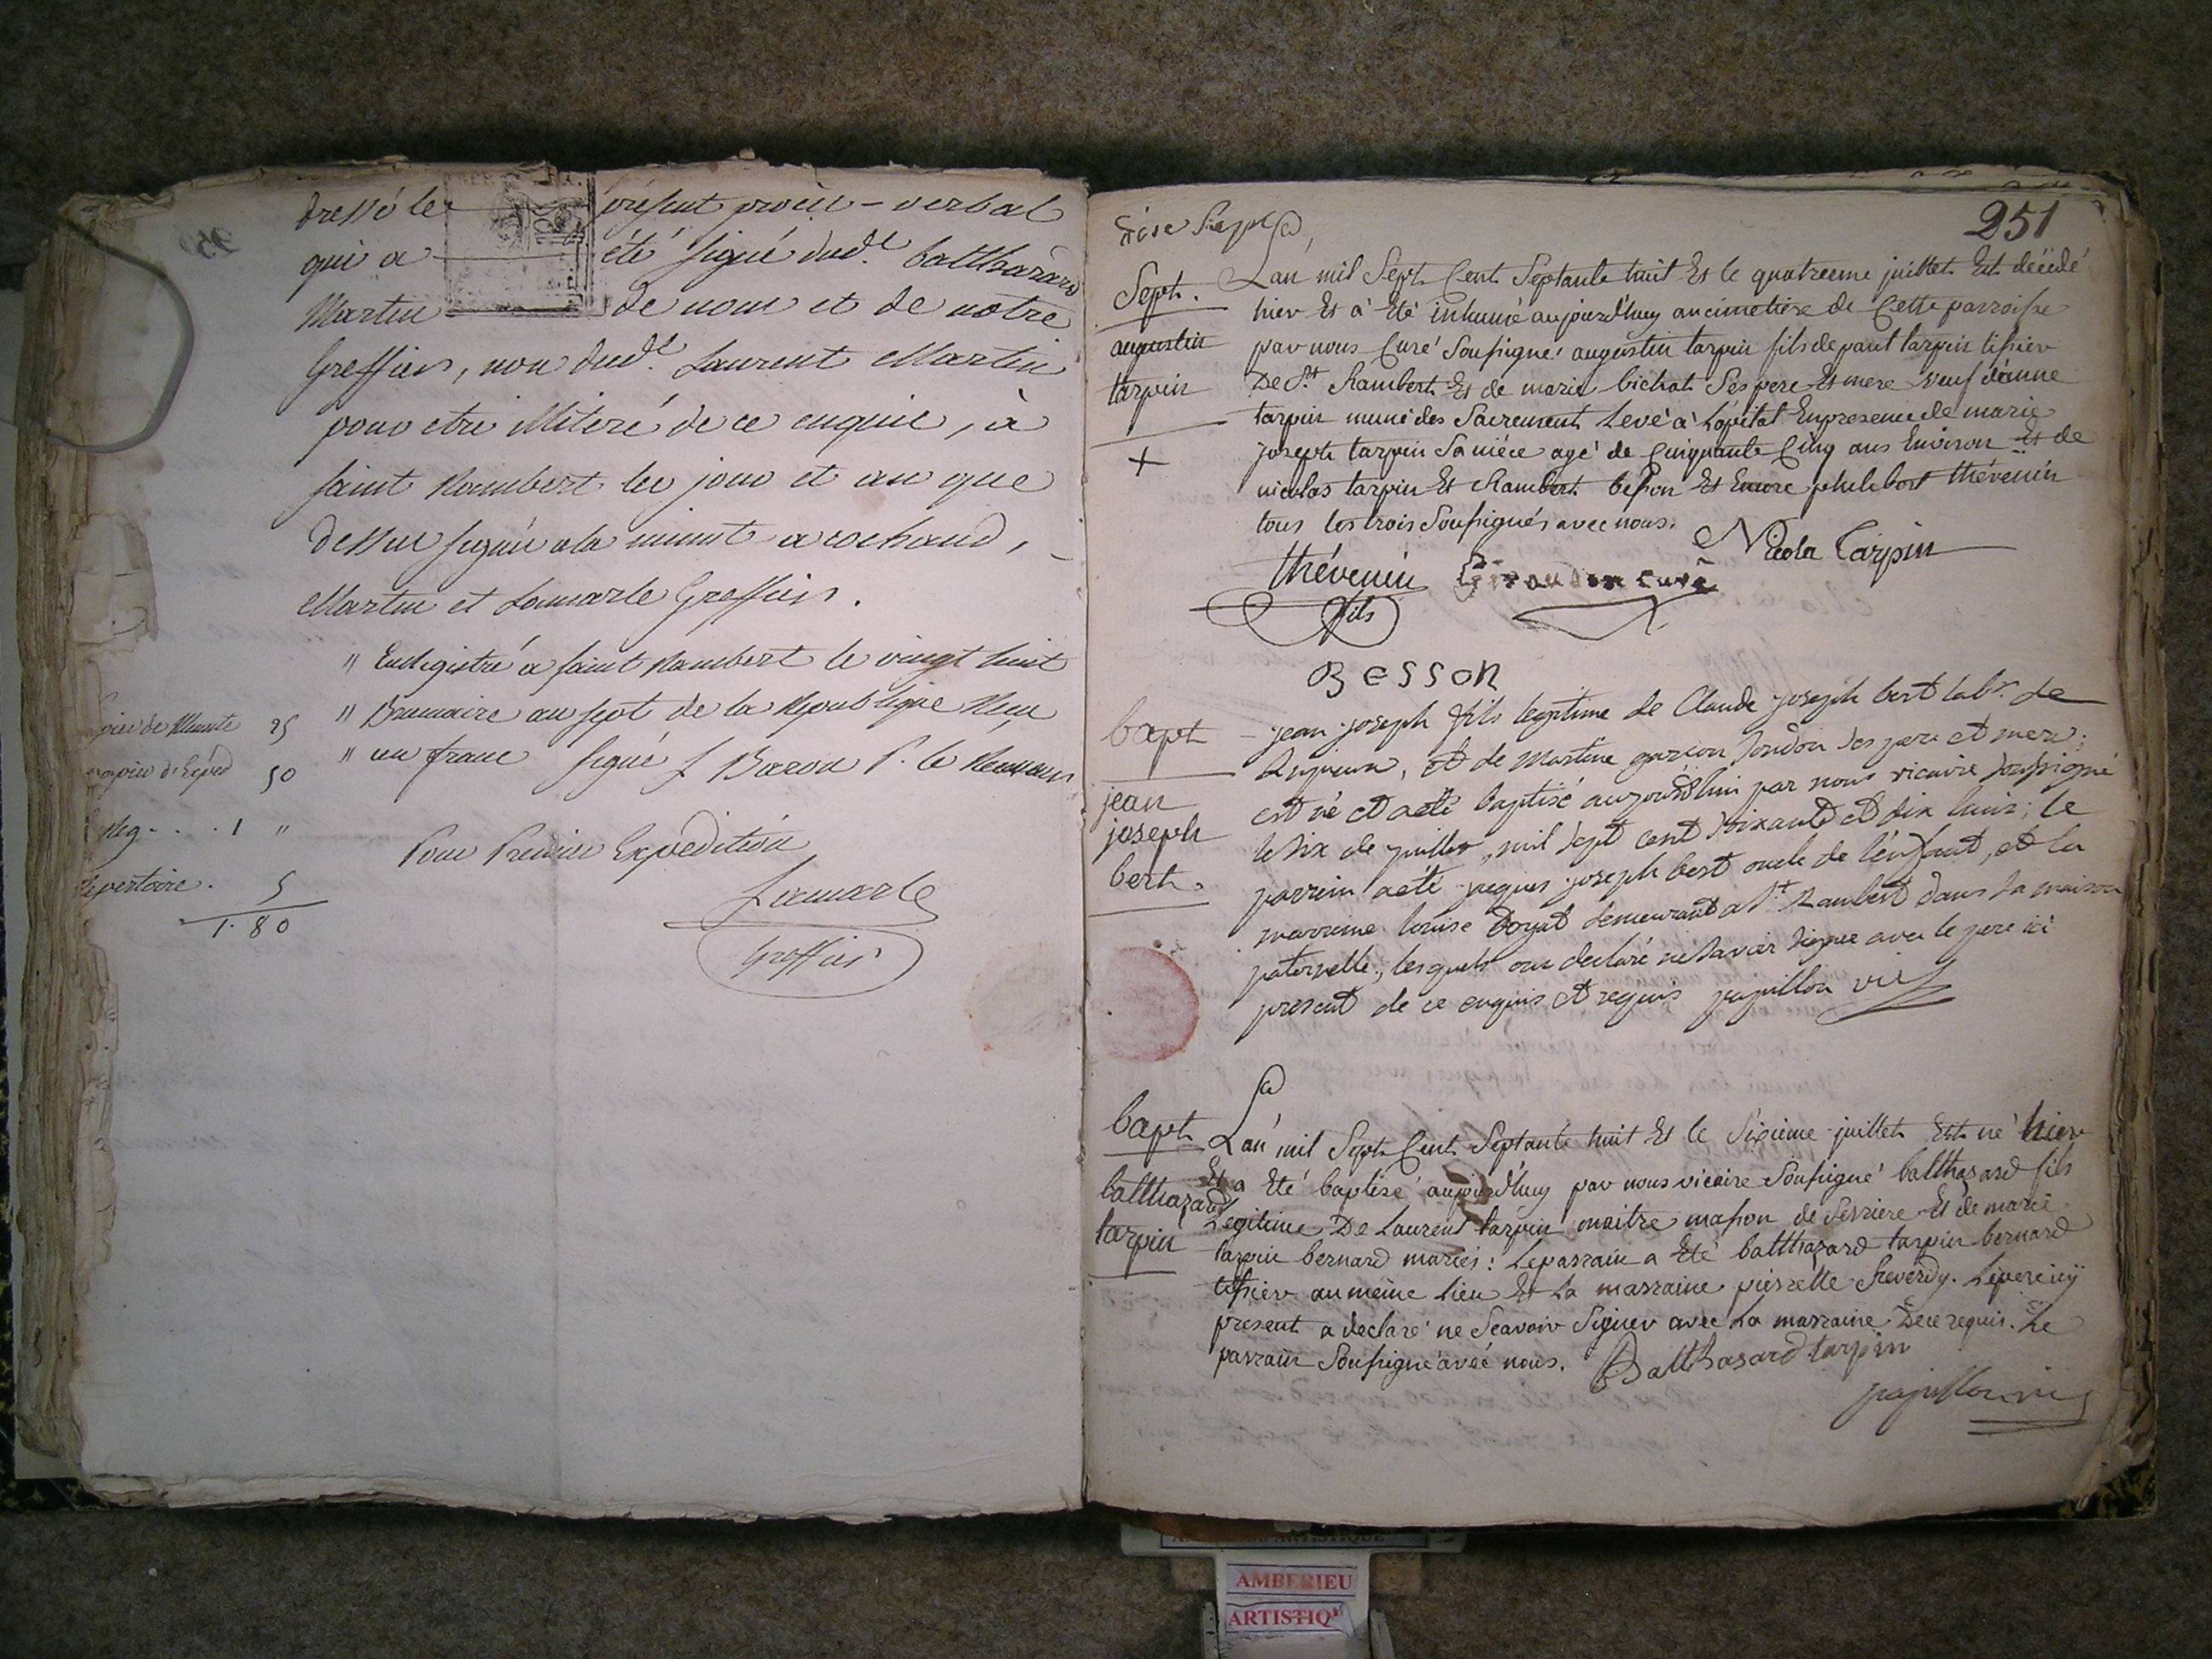 dressé le présent procès-verbal
qui a été signé dud.t balthazard
Martin de nous et de notre
Greffier, non dud.t Laurent Martin
pour etre illiteré de ce enquis, à
saint Rambert les jour et an que
dessus signés a la minute
Martin et Lamarle Greffier.
" Enregistré a saint Rambert le vingt huit
" Brumaire an sept de la République Reçu
" un franc signé Baron
papier de Minute 25
papier d'Exped 50
Reg. . . . 1 "
Repertoire . 5
1. 80
Pour Premiere Expedition
Lamarle
Greffier
251
Sept.
augustin
tarpin
+
Lan mil Sept Cent Septante huit Et le quatrieme juillet Est décédé
hier Et à Eté inhumé aujourd'huy au cimetiere de Cette parroisse
par nous Curé Soussigné augustin tarpin fils de paul tarpin tissier
De St Rambert Et de marie bichat Ses pere Et mere veuf d'anne
tarpin muni des Sacrement Levé à L'ôpital En presence de marie
joseph tarpin Sa niéce agé de Cinquante Cinq ans Environ Et de
nicolas tarpin Et Rambert besson Et Encore philebert thévenin
tous les trois Soussignés avec nous.
Nicola Tarpin
thévenin
fils
Giraudon curé
BESSON
bapt
jean
joseph
bert.
jean joseph fils legitime de Claude joseph bert labr. de
et de Martine garcon Jondon ses pere et mere;
est né et a eté baptisé aujourdhui par nous vicaire soussigné
le six de juillet, mil sept cent soixante et dix huit; le
parrein a eté jaques joseph bert oncle de l'enfant, et la
marreine louise demeurant a St Rambert dans la maison
paternelle, lesquels ont declaré ne savoir signer avec le pere ici
present de ce enquis et requis papillon vic
bapt
balthazard
tarpin
L'an mil Sept Cent Septante huit Et le Sixieme juillet Est né hier
Et a Eté baptisé aujourd'huy par nous vicaire Soussigné balthazard fils
Legitime De Laurent tarpin maitre masson de Serriere Et de marie
tarpin bernard mariés: Le parrain a Eté balthazard tarpin bernard
tissier au même lieu Et La marraine pierrette Reverdy. Le pere icÿ
present a declaré ne Scavoir Signer avec La marraine De ce requis. Le
parrain Soussigné avec nous. Balthasard tarpin
papillon vic
AMBERIEU
ARTISTIQ